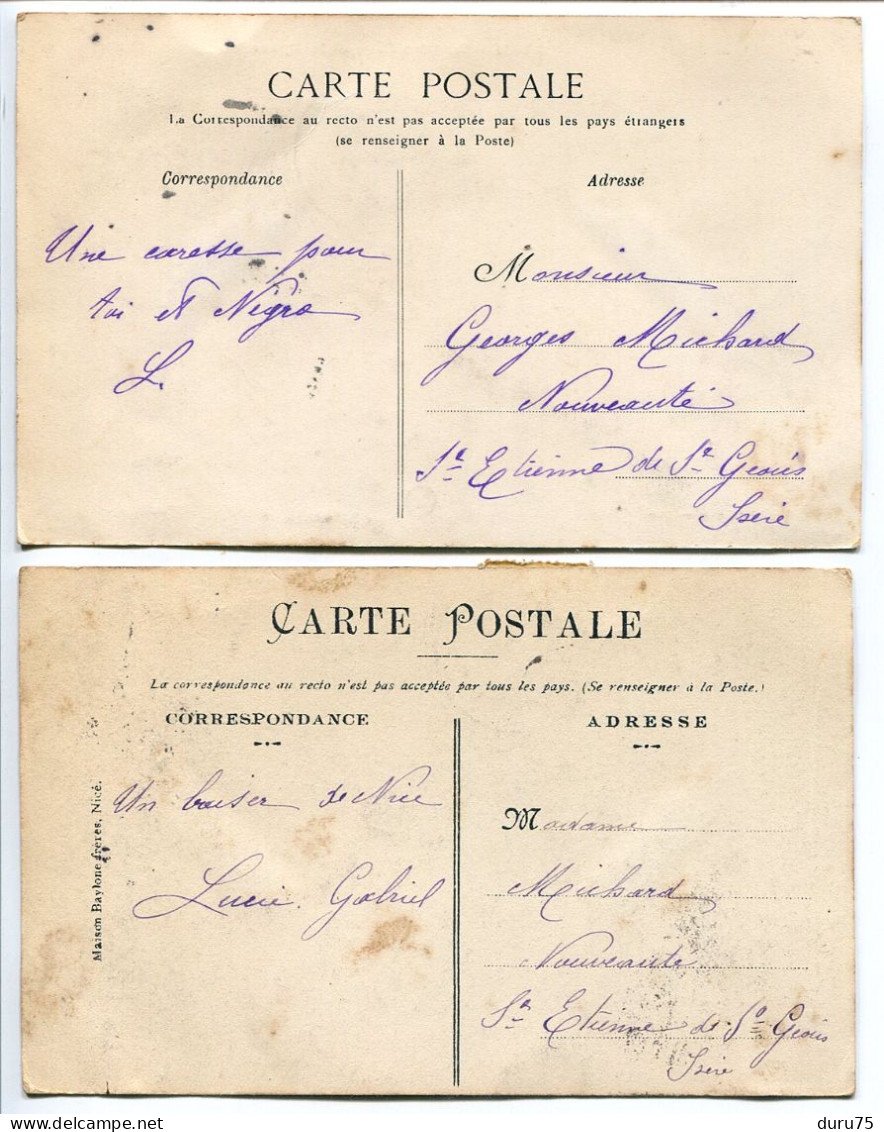 CARTE POSTALE
La Correspondance au recto n'est pas acceptée par tous les pays étrangers
(se renseigner à la Poste)
Correspondance
Adresse
Une caresse pour
toi et Négro
L.
Monsieur
Georges Michard
Nouveauté
St Etienne de St Geoirs
Isère
CARTE POSTALE
La correspondance au recto n'est pas acceptée par tous les pays. (Se renseigner à la Poste.)
CORRESPONDANCE
ADRESSE
Maison Baylone frères, Nice.
Un baiser de Nice
Lucie. Gabriel
Madame
Michard
Nouveauté
St Etienne de St Geoirs
Isère
duru75